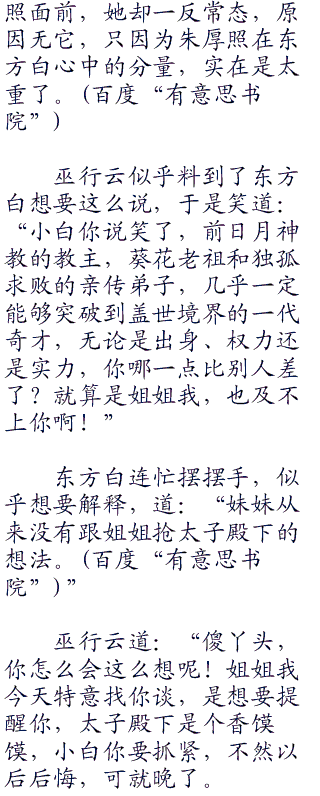 照面前，她却一反常态，原
因无它，只因为朱厚照在东
方白心中的分量，实在是太
重了。(百度“有意思书
院”)
巫行云似乎料到了东方
白想要这么说，于是笑道：
“小白你说笑了，前日月神
教的教主，葵花老祖和独孤
求败的亲传弟子，几乎一定
能够突破到盖世境界的一代
奇才，无论是出身、权力还
是实力，你哪一点比别人差
了？就算是姐姐我，也及不
上你啊！”
东方白连忙摆摆手，似
乎想要解释，道：“妹妹从
来没有跟姐姐抢太子殿下的
想法。(百度“有意思书
院”)”
巫行云道：“傻丫头，
你怎么会这么想呢！姐姐我
今天特意找你谈，是想要提
醒你，太子殿下是个香馍
馍，小白你要抓紧，不然以
后后悔，可就晚了。